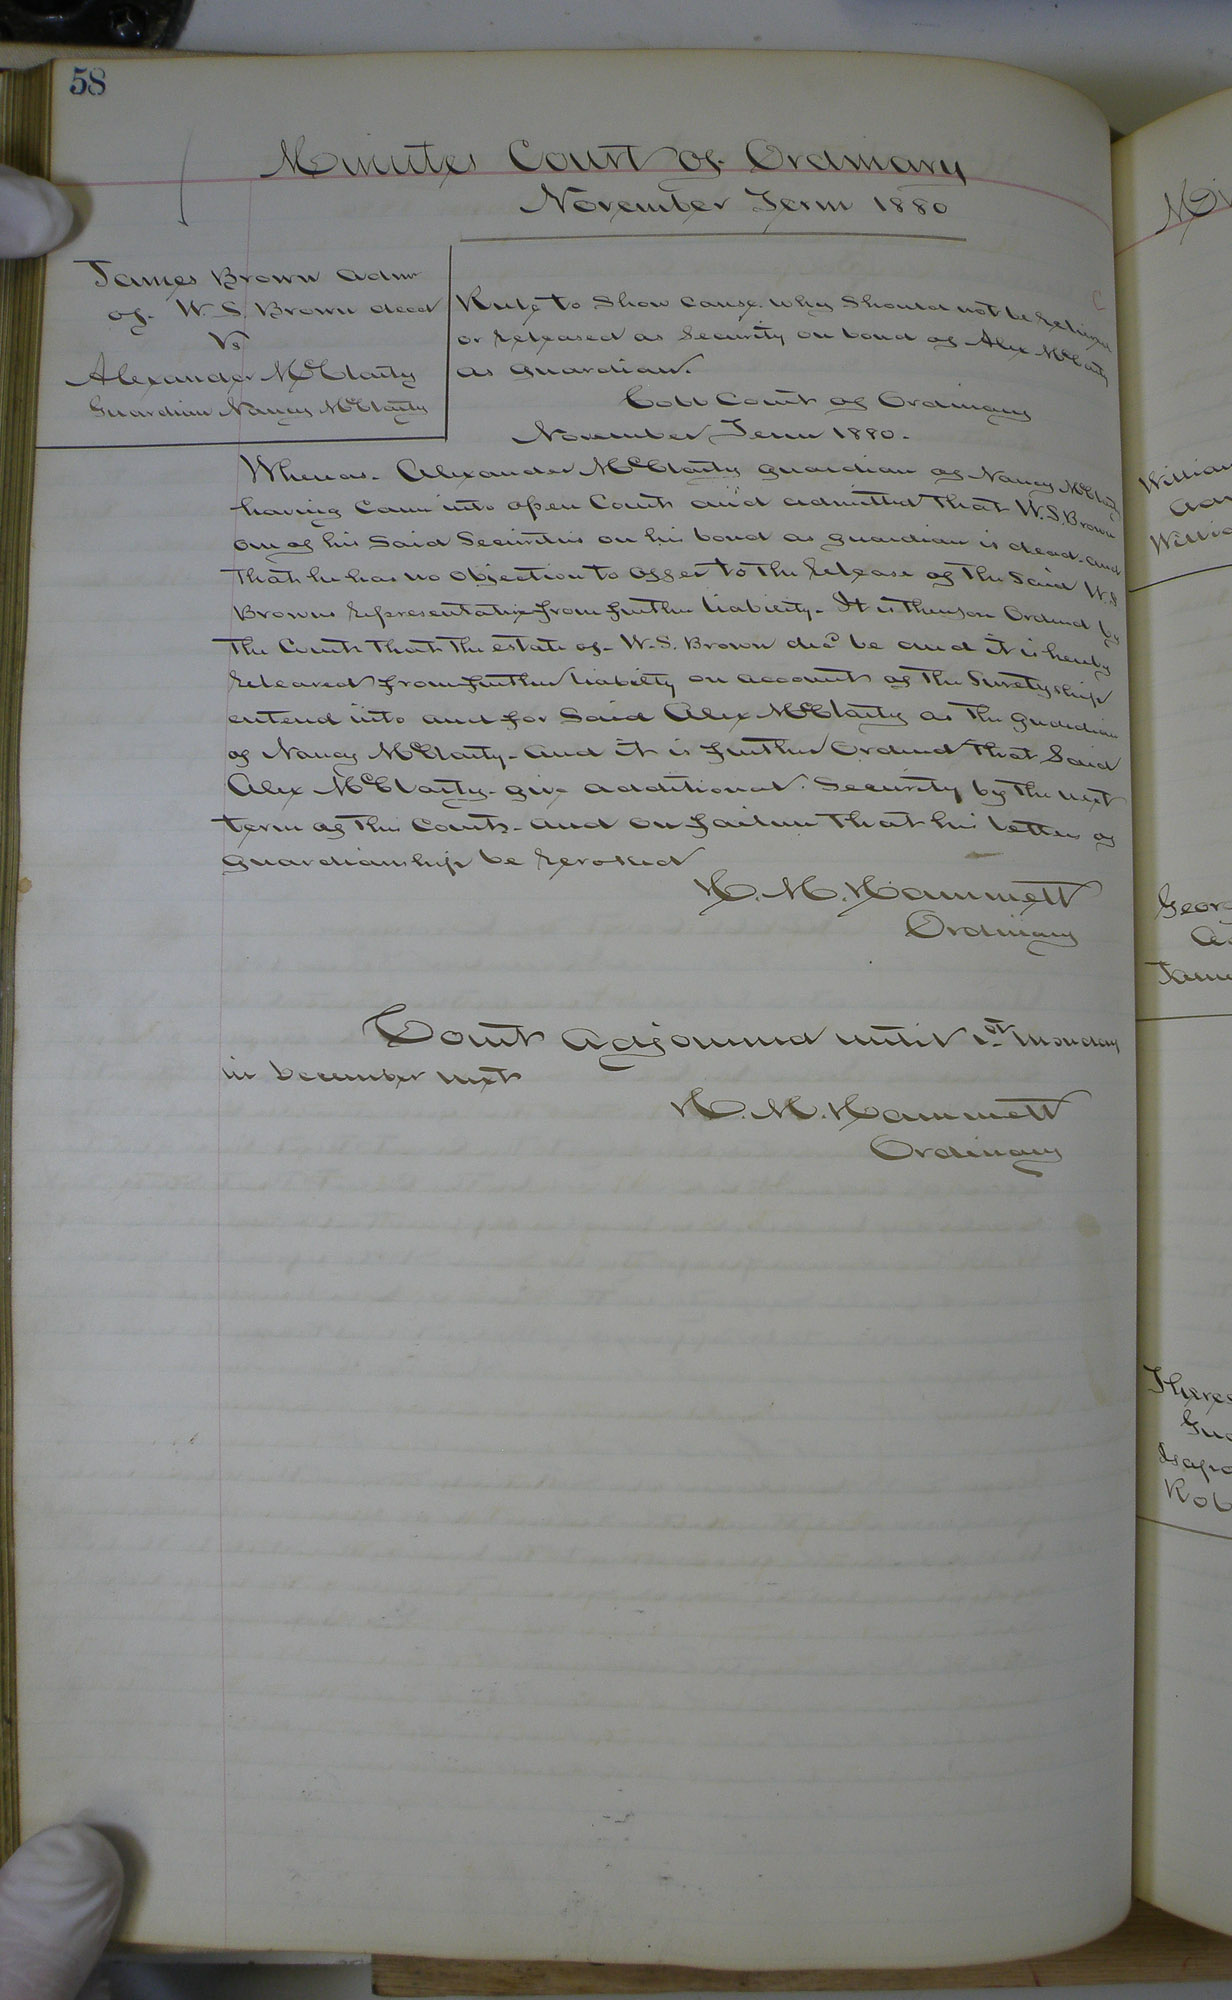 58
Minutes Court of Ordinary
November Term 1880
James Brown admr
of W. S. Brown decd
Vs
Alexander McClarty
Guardian Nancy McClarty
Rule to Show cause why Should not be relieved
or released as Security on bond of Alex McClarty
as guardian.
Cobb Court of Ordinary
November Term 1880.
Whereas. Alexander McClarty guardian of Nancy McClarty
having Came into open Court and admitted that W.S. Brown
one of his Said Securities on his bond as guardian is dead. and
that he has no objection to offer to the release of the Said W.S.
Browns representative from further liability. It is therefore Ordered by
the Court that the estate of W.S. Brown decd be and it is hereby
released from further liability on account of the Suretyship
entered into and for Said Alex McClarty as the guardian
of Nancy McClarty. and it is further Ordered that Said
Alex McClarty give additional Security by the next
term of this Court. and on failure that his letters of
guardianship be revoked
H. M. Hammett
Ordinary
Court adjourned until 1st Monday
in December next
H. M. Hammett
Ordinary
Willia
Willia
Geor
Jame
Rob